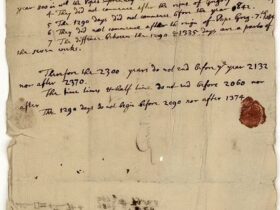 year 800 in wch the Popes supremacy
4 They did not
5 The 1290 days did not commence before the year 842.
6 They did not commence after the reign of Pope Greg. 7th
7 The difference between the 1290 & 1335 days are a parts of
the seven weeks.
Therefore the 2300 years do not end before ye year 2132
nor after 2370.
The time times & half time do not end before 2060 nor
after
The 1290 days do not begin before 2090 nor after 1374